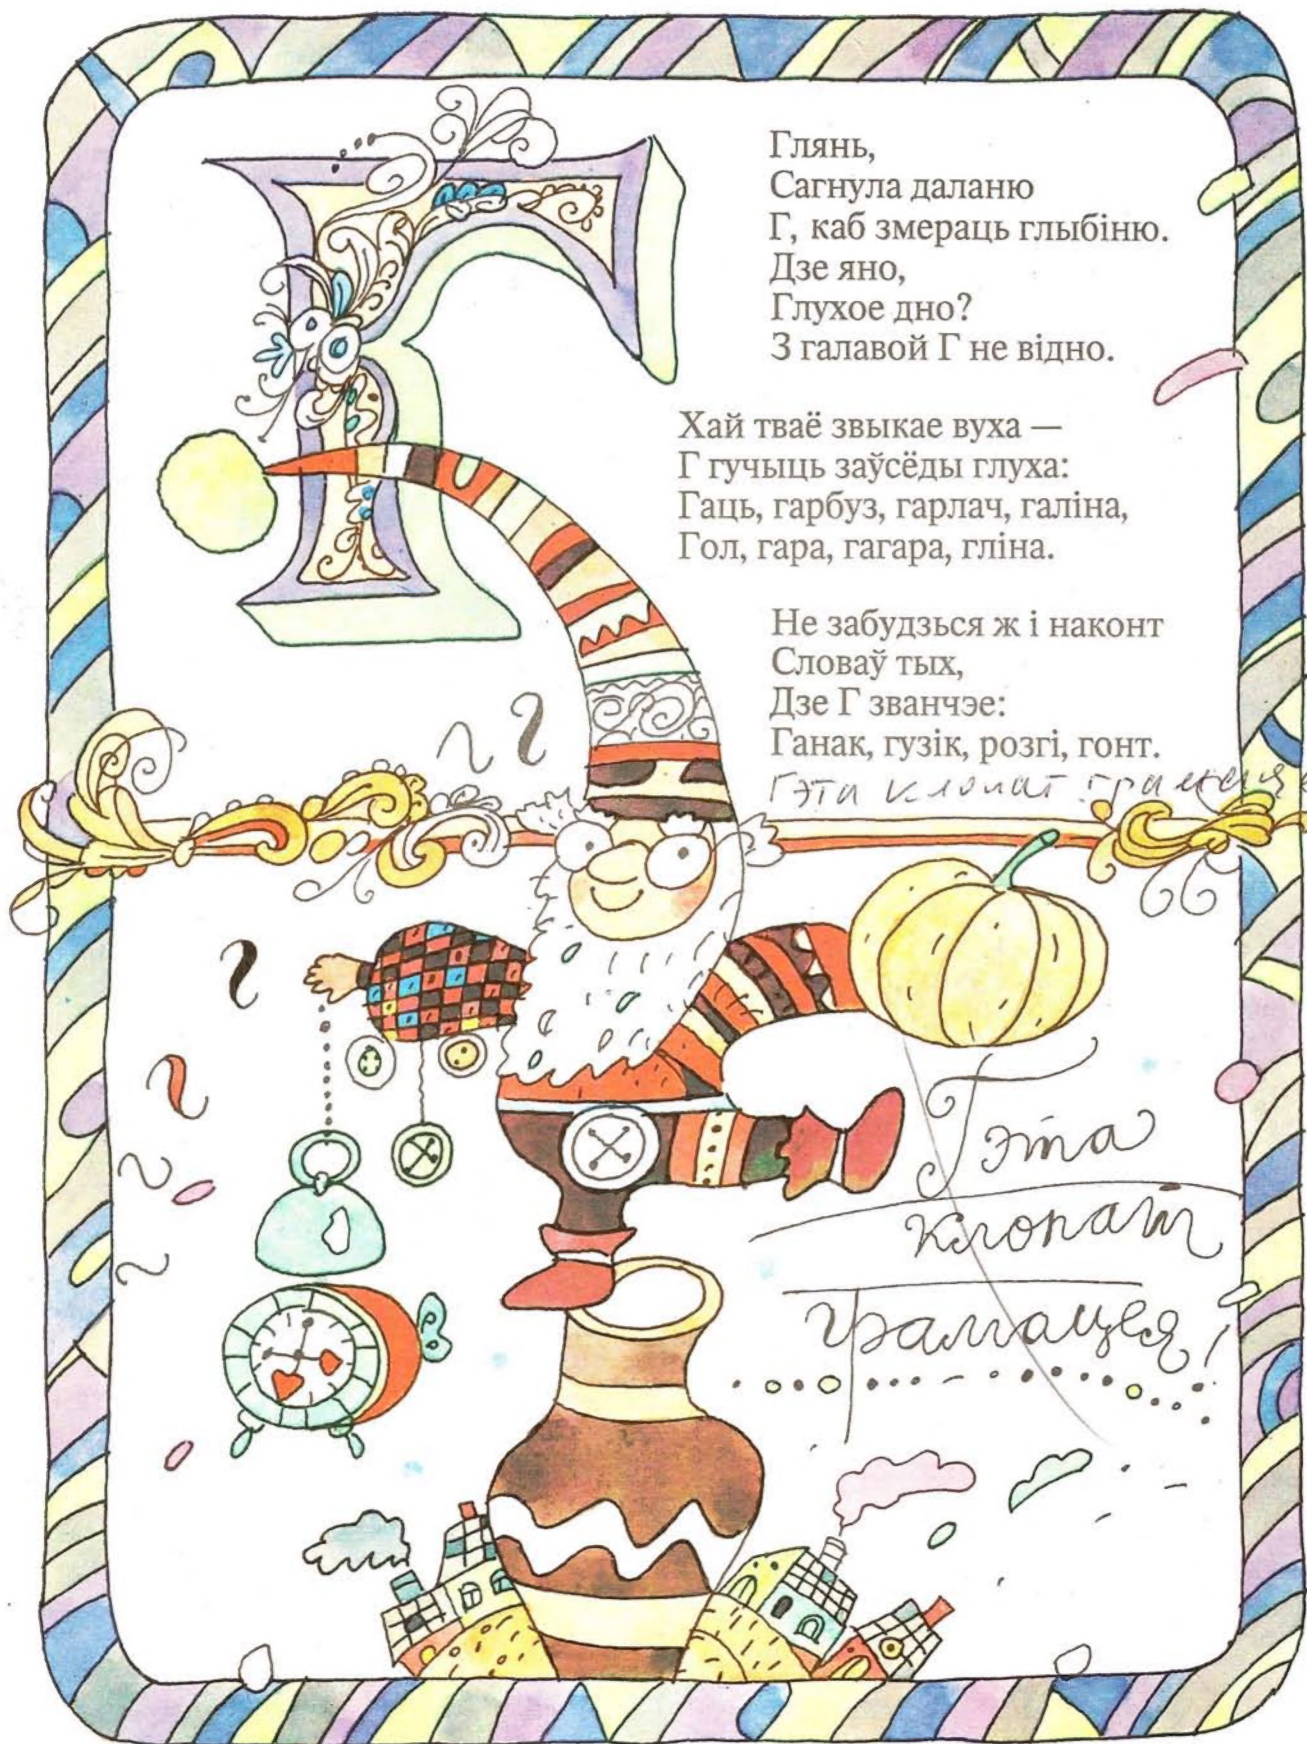 Глянь,
Сагнула даланю
Г, каб змераць глыбіню.
Дзе яно,
Глухое дно?
З галавой Г не відно.
Хай тваё звыкае вуха —
Г гучыць заўсёды глуха:
Гаць, гарбуз, гарлач, галіна,
Гол, гара, гагара, гліна.
Не забудзься ж і наконт
Словаў тых,
Дзе Г званчэе:
Ганак, гузік, розгі, гонт.
Гэта клопат грамацея
г г
г
г
г
г
Гэта
клопат
грамацея!